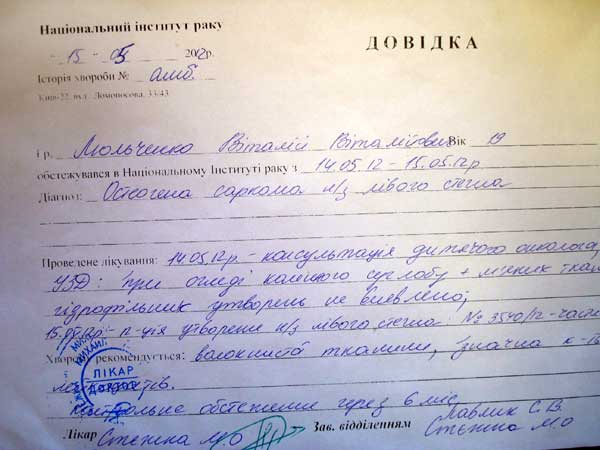 Національний інститут раку
15 05 2012р.
ДОВІДКА
Історія хвороби № амб.
Київ-22, вул. Ломоносова, 33/43
і р. Мюльченко Віталій Віталійович Вік 19
обстежувався в Національному Інституті раку з 14.05.12 - 15.05.12р
Діагноз: Остеогена саркома н/з лівого стегна
Проведене лікування: 14.05.12р. - консультація дитячого онколога,
УЗД: при огляді колінного суглобу + мягких
утворень не виявлено;
15.05.12р. п-ція утворення н/з лівого стегна. № 3540/12-
Хворому рекомендується: волокниста тканини, значна к-ть
Контрольне обстеження через 6 міс.
ЛІКАР
Лікар Стежина М.О Зав. відділенням Павлик С.В.
Стежина М.О